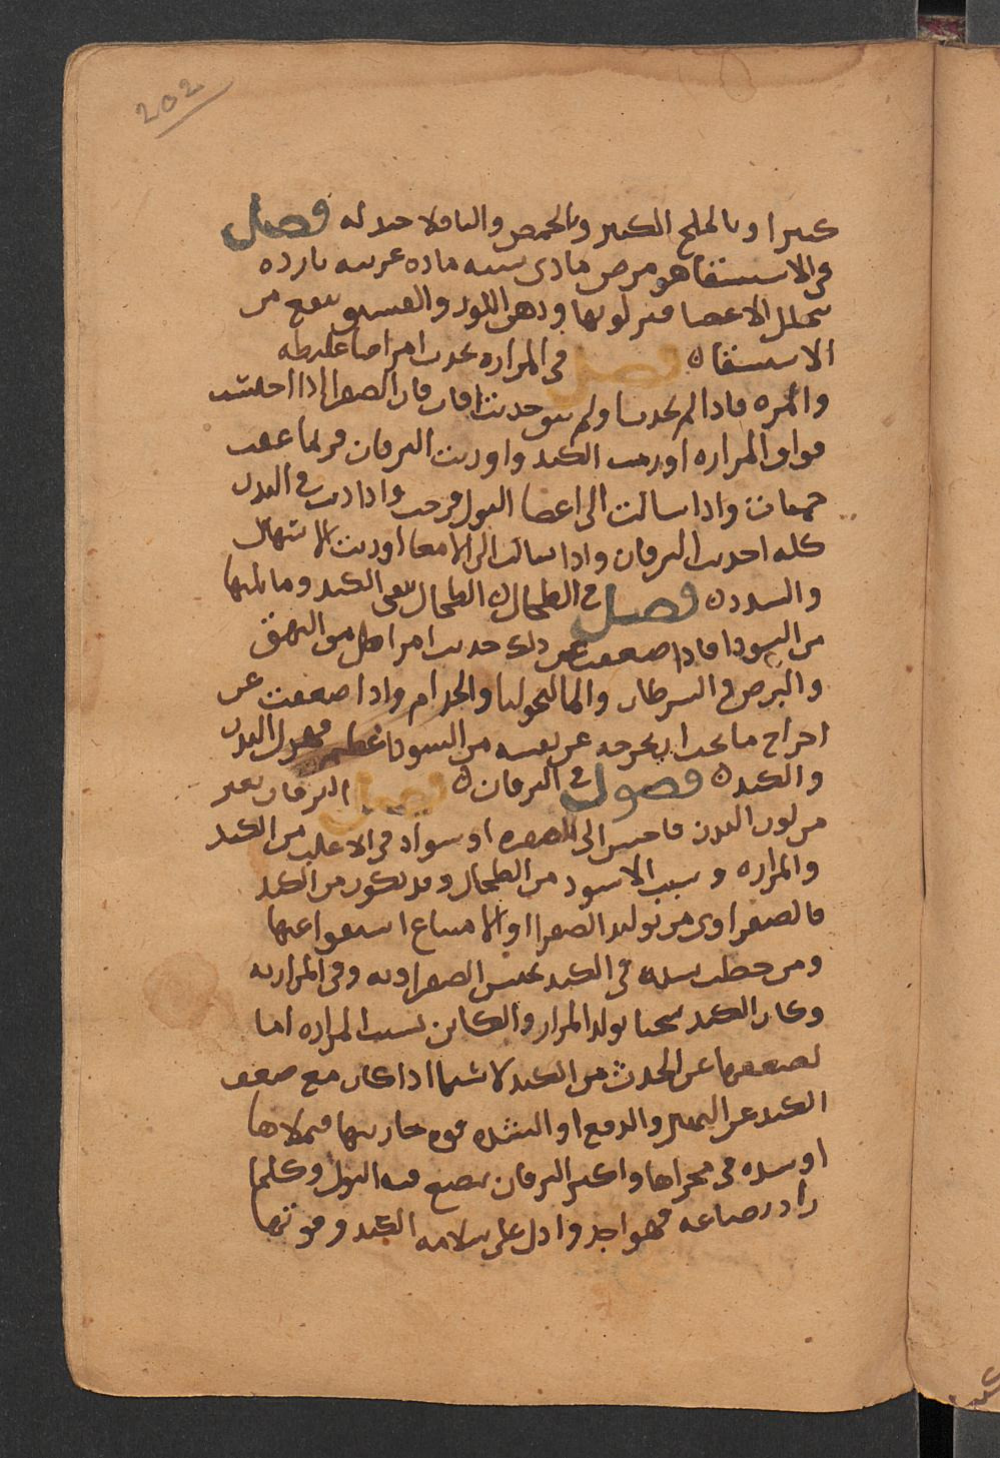 202
كثيرا وبالملح الكثير وبالحمص والباقلا جيد له فصل
في الاستسقا هو مرض مادي سببه مادة غريبة باردة
تتخلل الاعضا فتربو بها ودهن اللوز والفستق ينفع من
الاستسقا ه فصل في المرارة يحدث امراضا غليظة
والمرة فاذا لم يجذبها ولم حدثت افات فان الصفرا اذا احتبست
فوق المرارة اورمت الكبد واورثت اليرقان فربما عفنت
حميات واذا سالت الى اعضا البول قرحت واذا دبت في البدن
كله احدثت اليرقان واذا سالت الى الامعا اورثت الاسهال
والسدد ه فصل في الطحال ه الطحال ينقي الكبد وما يليها
من السودا فاذا ضعف عن ذلك حدثت امراض من البهق
والبرص في السرطان والماليخوليا والجذام واذا ضعفت عن
اخراج ما يجب ان يخرجه عن نفسه من السودا عظم فهزل البدن
والكبد ه فصول في اليرقان ه فصل اليرقان تغير
من لون البدن فاحش الى الصفرة او سواد في الاغلب من الكبد
والمرارة وسبب الاسود من الطحال وقد يكون من الكبد
فالصفراوي من توليد الصفرا او الامتناع استفراغها
ومن سدة في الكبد تحبس الصفراوية وفي المرارية
وكان الكبد سخنا يولد المرار والكاين بسبب المرارة اما
لضعفها عن الجذب من الكبد لا سيما اذا كان مع ضعف
الكبد عن التمييز والدفع او لشدة قوة جاذبتها فيملاها
او سدة في مجراها واكثر اليرقان يصبغ فيه البول وكلما
زاد صباغه فهو اجود وادل على سلامة الكبد وقوتها